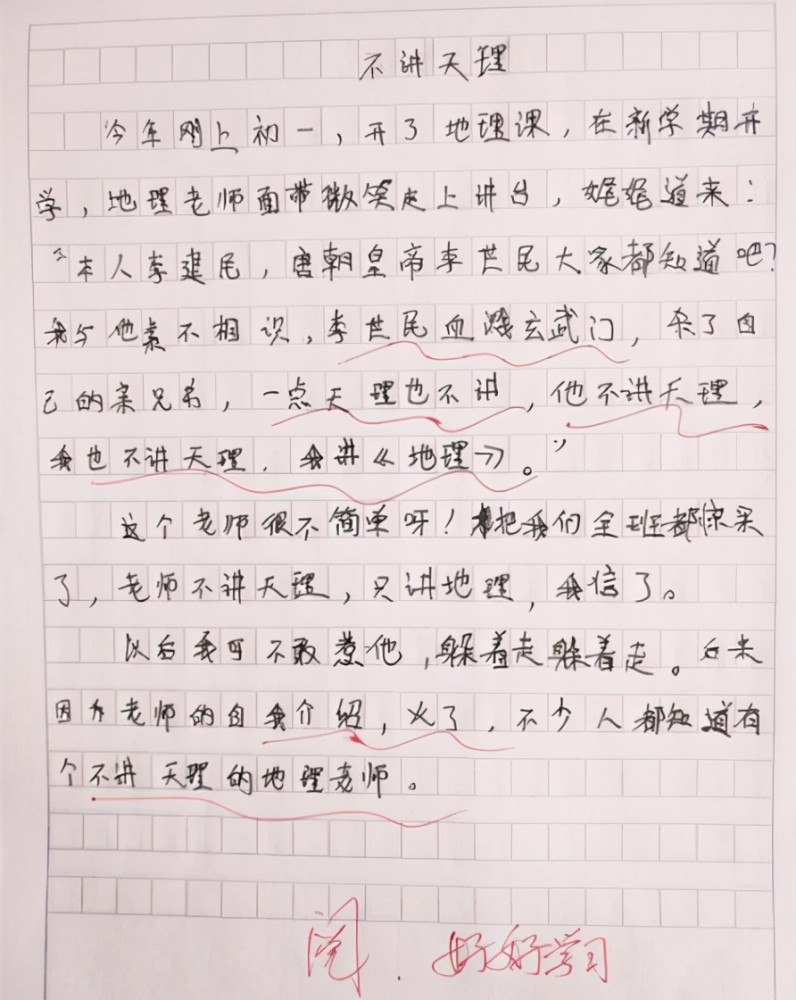 不讲天理
今年刚上初一，开了地理课，在新学期开
学，地理老师面带微笑走上讲台，娓娓道来：
“本人李建民，唐朝皇帝李世民大家都知道吧？
我与他素不相识，李世民血溅玄武门，杀了自
己的亲兄弟，一点天理也不讲，他不讲天理，
我也不讲天理，我讲《地理》。”
这个老师很不简单呀！把我们全班都惊呆
了，老师不讲天理，只讲地理，我信了。
以后我可不敢惹他，躲着走躲着走。后来
因为老师的自我介绍，火了，不少人都知道有
个不讲天理的地理老师。
阅．好好学习